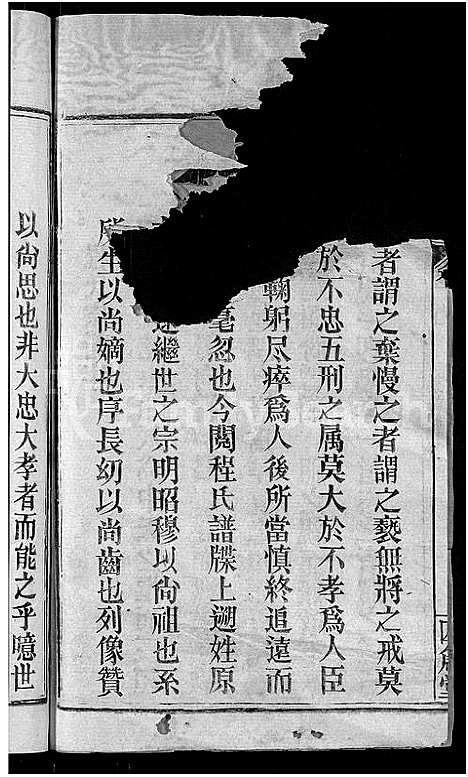 者謂之棄慢之者謂之褻無將之戒莫
於不忠五刑之属莫大於不孝爲人臣
鞠躬尽瘁爲人後所當慎終追遠而
毫忽也今閱程氏譜牒上遡姓原
遠繼世之宗明昭穆以尙祖也系
所生以尙嫡也序長幼以尙齒也列像贊
以尙思也非大忠大孝者而能之乎噫世